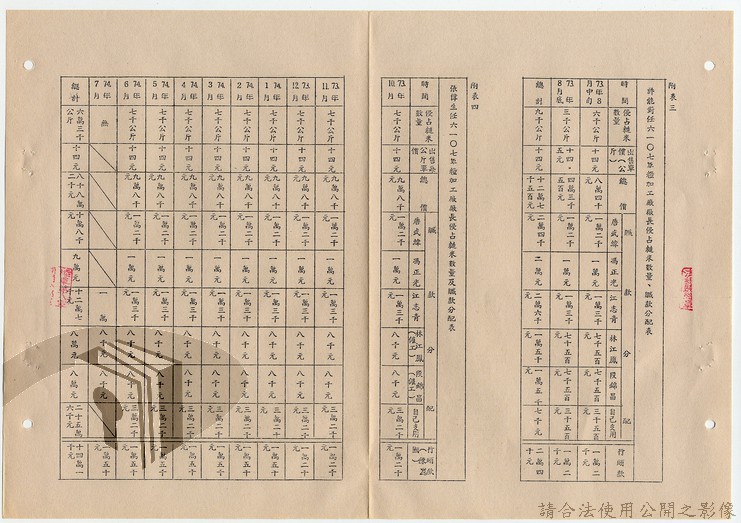 附表三
任六一〇七單糧加工廠廠長侵占糙米數量、贓款分配表
時間 侵占糙米數量 出售單價(公斤) 總價 贓款分配 唐武緯 馮正光 江志青 林江鳳 段錦昌 自己支用 行賄款
73年8月中旬 六千公斤 十四元 八萬四千元 一萬二千元 一萬元 一萬三千元 七千五百元 七千五百元 三千五百元 一萬二千元
73年8月底 三千公斤 十四・五元 四萬三千五百元 一萬二千元 一萬元 一萬三千元 七千五百元 七千五百元 三千五百元 一萬二千元
總計 九千公斤 十二萬七千五百元 二萬四千元 二萬元 二萬六千元 一萬五千元 一萬五千元 七千元 二萬四千元
附表四
張偉生任六一〇七單糧加工廠廠長侵占糙米數量及贓款分配表
時間 侵占糙米數量 出售每公斤單價 總價 贓款分配 唐武緯 馮正光 江志青 林江鳳(雜工) 段錦昌(雜工) 自己支用 行賄款
73年10月 七千公斤 十四元 九萬八千元 一萬二千元 一萬元 一萬三千元 八千元 八千元 三萬二千元 一萬二千元
73年11月 七千公斤 十四元 九萬八千元 一萬二千元 一萬元 一萬三千元 八千元 八千元 三萬二千元 一萬五千元
73年12月 七千公斤 十四元 九萬八千元 一萬二千元 一萬元 一萬三千元 八千元 八千元 三萬二千元 一萬五千元
74年1月 七千公斤 十四元 九萬八千元 一萬二千元 一萬元 一萬三千元 八千元 八千元 三萬二千元 一萬五千元
74年2月 七千公斤 十四元 九萬八千元 一萬二千元 一萬元 一萬三千元 八千元 八千元 三萬二千元 一萬五千元
74年3月 七千公斤 十四元 九萬八千元 一萬二千元 一萬元 一萬三千元 八千元 八千元 三萬二千元 一萬五千元
74年4月 七千公斤 十四元 九萬八千元 一萬二千元 一萬元 一萬三千元 八千元 八千元 三萬二千元 一萬五千元
74年5月 七千公斤 十四元 九萬八千元 一萬二千元 一萬元 一萬三千元 八千元 八千元 三萬二千元 一萬五千元
74年6月 七千公斤 十四元 九萬八千元 一萬二千元 一萬元 一萬三千元 八千元 八千元 三萬二千元 一萬五千元
74年7月 無 一萬元 八千元 八千元 一萬五千元
總計 六萬三千公斤 十四元 八十八萬二千元 十萬八千元 九萬元 十二萬七千元 八萬元 八萬元 二十五萬六千元 十四萬一千元
請合法使用公開之影像